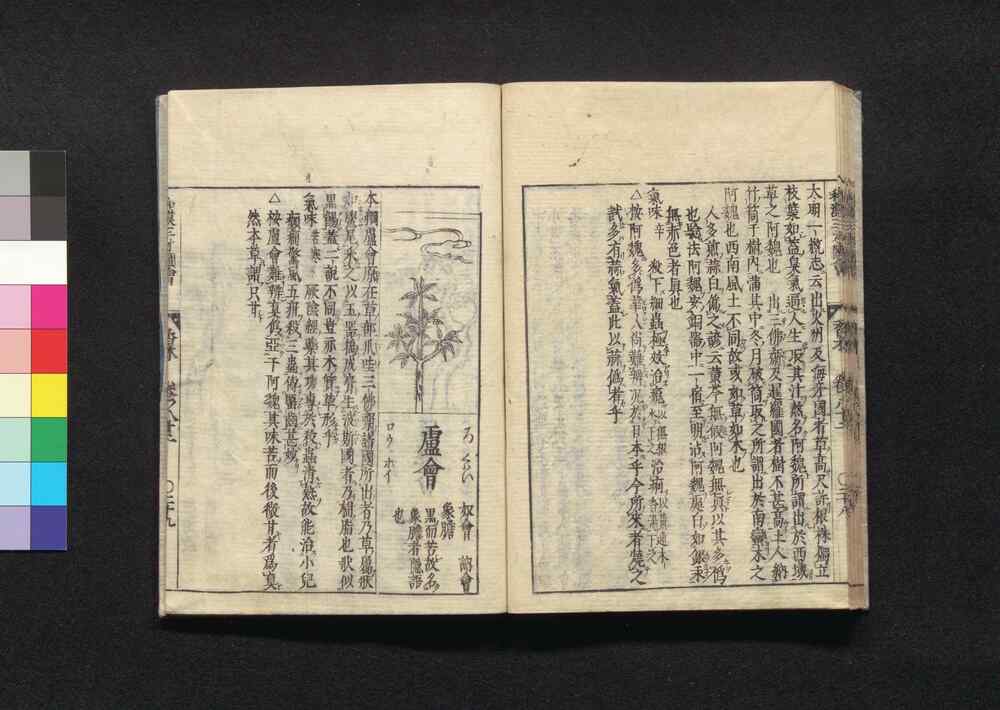 大明一統志云出火州及海牙國者草高尺許根株獨立
枝葉如蓋臭氣逼人生取其汁熬名阿魏所謂出於西域
草之阿魏也 出三佛齊及暹羅國者樹不甚高土人納
竹筒于樹內滿其中冬月破筒取之所謂出於南蠻木之
阿魏也西南風土不同故或如草如木也
人多煎蒜白僞之諺云黃芩無假阿魏無眞以其多僞
也驗法阿魏安銅器中一宿至明沾阿魏處白如銀汞
無赤色者眞也
氣味辛 殺下細蟲極妙治瘧
△按阿魏多僞華人尚難辨況於日本乎今所來者燒之
試多有蒜氣蓋此以蒜僞者乎
ろくはい
盧會
ロウ ホイ
奴會 訥會
象膽
黑而苦故名
象膽者隱語
也
本綱盧會原在草部爪哇三佛齊諸國所出者乃草屬狀
如鱟尾采之以玉器搗成膏生波斯國者乃樹脂也狀似
黑餳蓋二說不同豈亦木質草形乎
氣味苦寒 厥陰經藥其功專於殺蟲清熱故能治小兒
癲癇驚風五疳殺三蟲傅䘌齒甚妙
△按盧會難辨眞僞亞于阿魏其味苦而後微甘者爲眞
然本草謂只苦
香木 卷之八十二 〇二十九